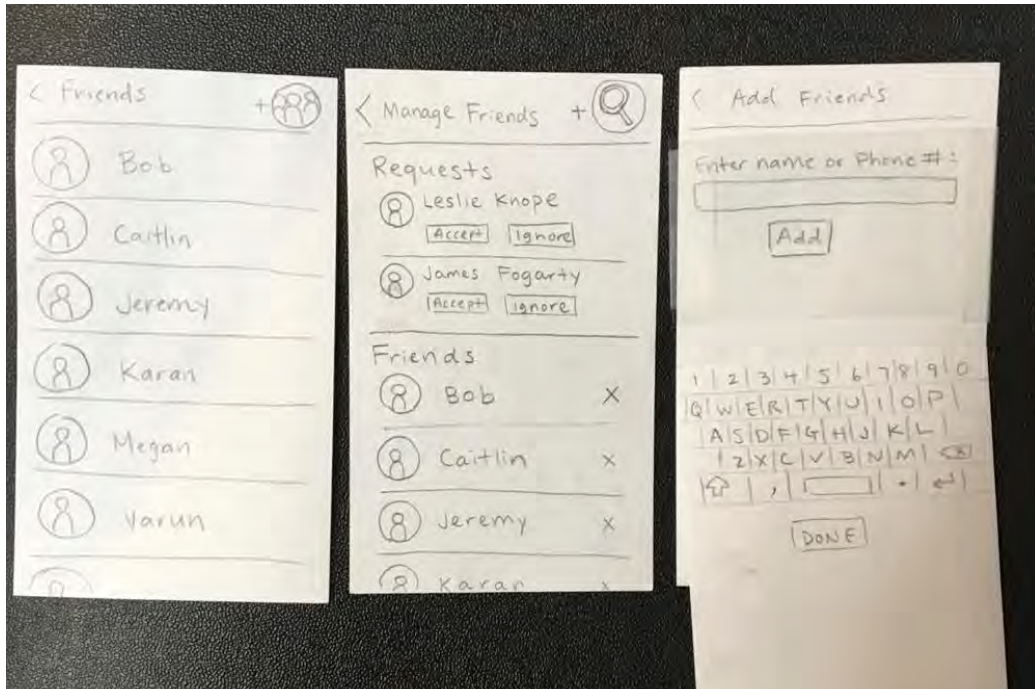 < Friends +
Bob
Caitlin
Jeremy
Karan
Megan
Varun
< Manage Friends +
Requests
Leslie Knope
Accept Ignore
James Fogarty
Accept Ignore
Friends
Bob X
Caitlin X
Jeremy X
Karan X
< Add Friends
Enter name or Phone #:
Add
1 2 3 4 5 6 7 8 9 0
Q W E R T Y U I O P
A S D F G H J K L
Z X C V B N M
, .
DONE